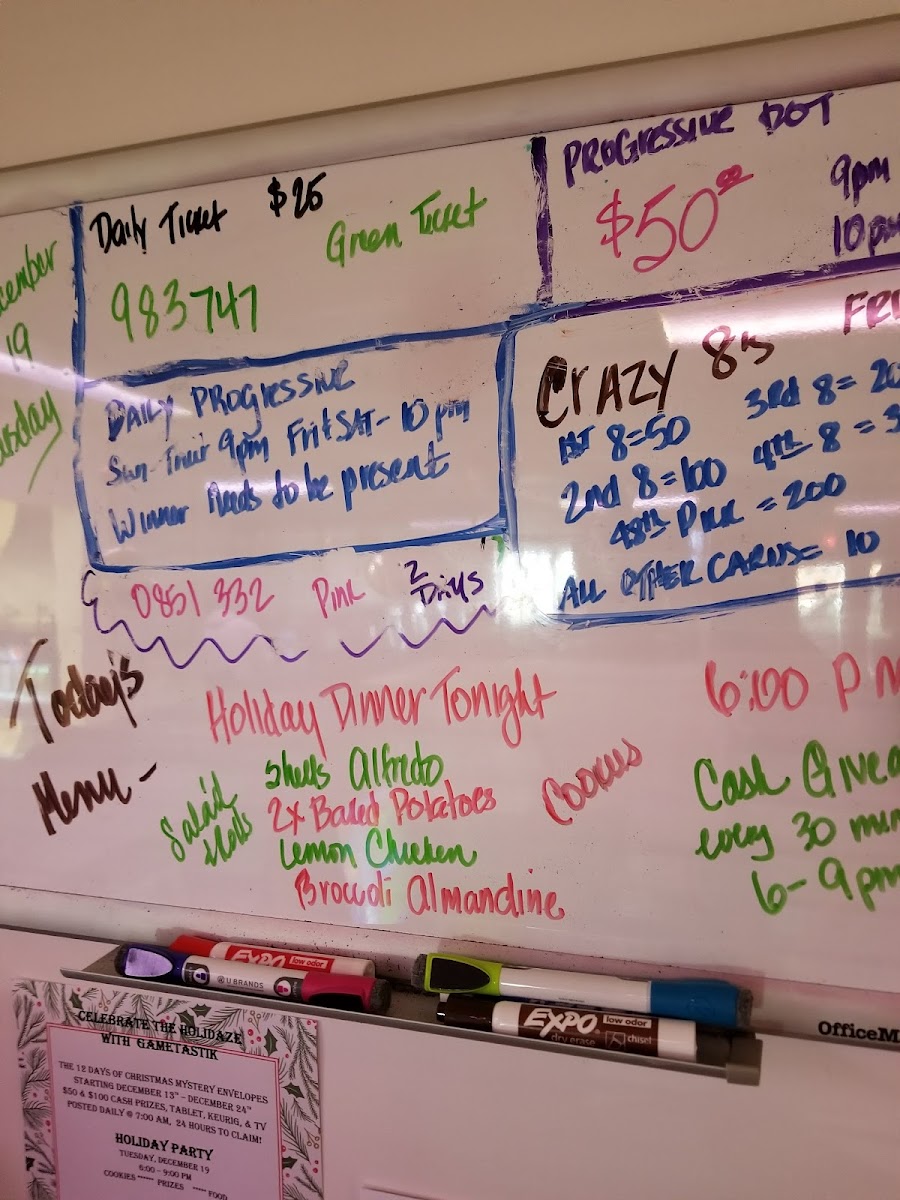 cember
19
Daily Ticket $25
Green Ticket
983747
PROGRESSIVE DOT
$50.00
9pm
10pm
DAILY PROGRESSIVE
Sun-Thur 9pm Fri & SAT - 10 pm
Winner Needs to be present
CRAZY 8's FRI
1st 8=50 3rd 8= 20
2nd 8=100 4th 8 = 3
48th Pick = 200
ALL OTHER CARDS= 10
0851 332 Pink 2 Days
Today's
Menu -
Holiday Dinner Tonight
6:00 PM
Salad
Rolls
Shells Alfredo
2x Baked Potatoes
Lemon Chicken
Broccoli Almandine
Cookies
Cash Givea
every 30 min
6-9pm
EXPO low odor
@U BRANDS
EXPO low odor
dry erase chisel
OfficeM
CELEBRATE THE HOLIDAZE
WITH GAMETASTIK
THE 12 DAYS OF CHRISTMAS MYSTERY ENVELOPES
STARTING DECEMBER 13TH - DECEMBER 24TH
$50 & $100 CASH PRIZES, TABLET, KEURIG, & TV
POSTED DAILY @ 7:00 AM, 24 HOURS TO CLAIM!
HOLIDAY PARTY
TUESDAY, DECEMBER 19
6:00 - 9:00 PM
COOKIES ****** PRIZES ***** FOOD